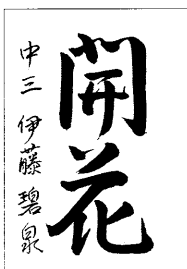 開花
中三 伊藤碧泉